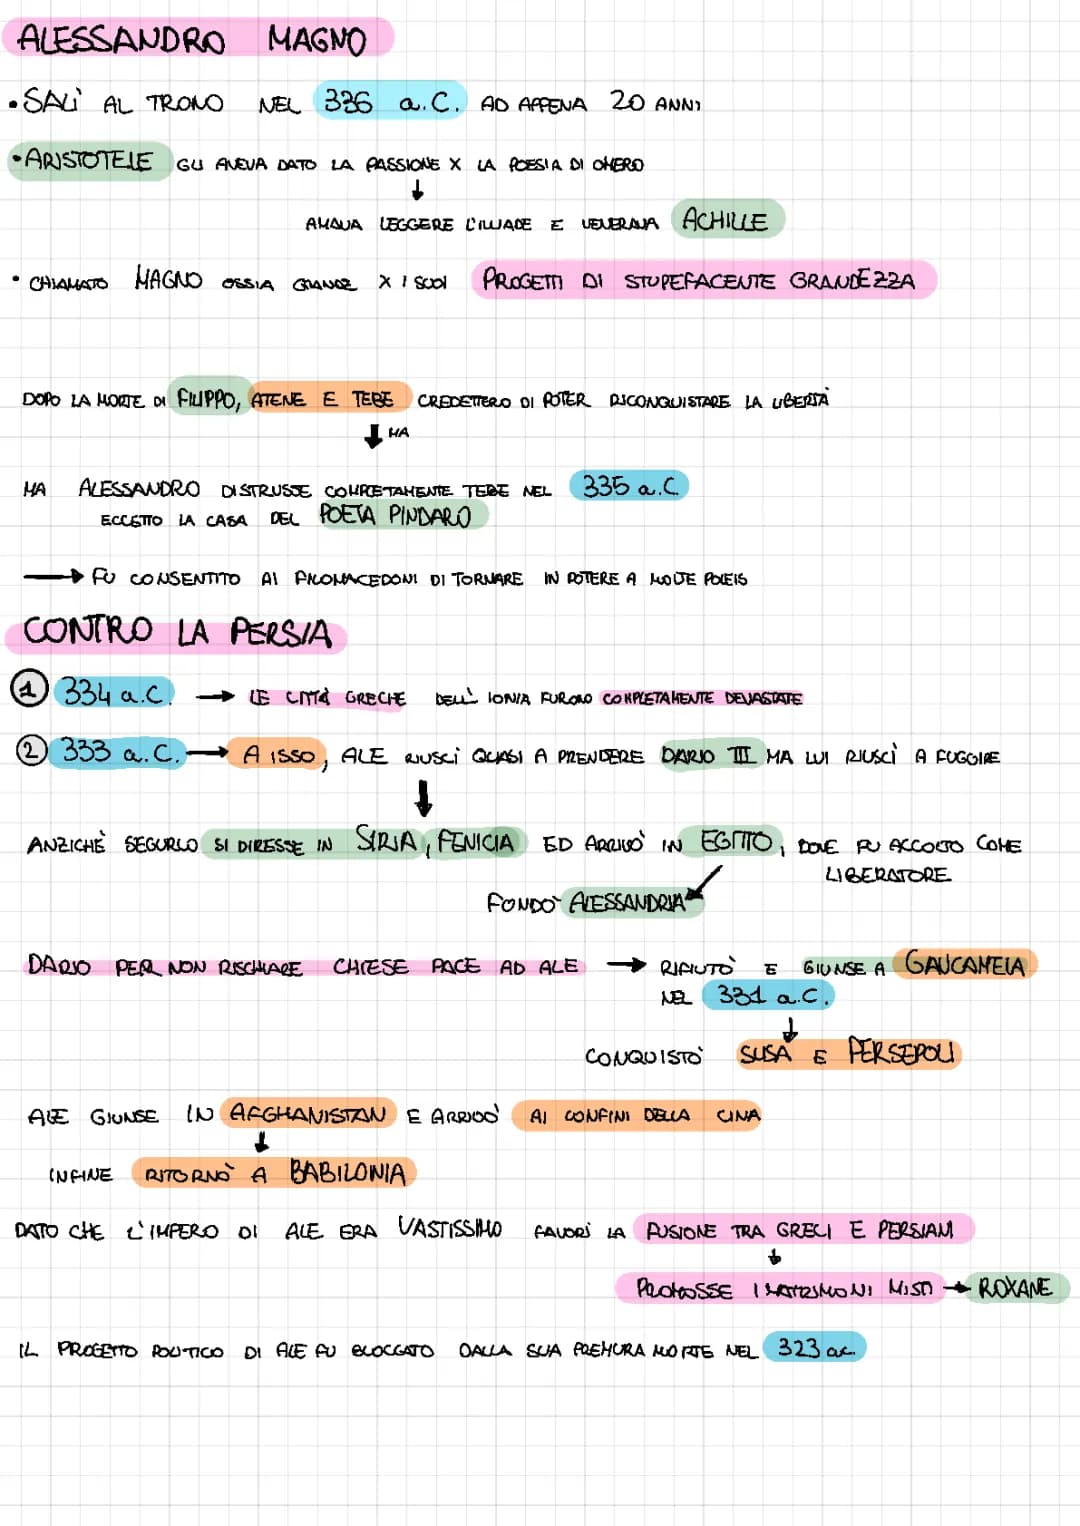 ALESSANDRO MAGNO
• SALÌ AL TRONO NEL 336 a.C. AD APPENA 20 ANNI
• ARISTOTELE GLI AVEVA DATO LA PASSIONE X LA POESIA DI OMERO
↓
AMAVA LEGGERE L'ILIADE E VENERAVA ACHILLE
• CHIAMATO MAGNO OSSIA GRANDE X I SUOI PROGETTI DI STUPEFACENTE GRANDEZZA
DOPO LA MORTE DI FILIPPO, ATENE E TEBE CREDETTERO DI POTER RICONQUISTARE LA LIBERTÀ
↓ MA
MA ALESSANDRO DISTRUSSE COMPLETAMENTE TEBE NEL 335 a.C.
ECCETTO LA CASA DEL POETA PINDARO
→ FU CONSENTITO AI FILOMACEDONI DI TORNARE IN POTERE A MOLTE POLEIS
CONTRO LA PERSIA
1 334 a.C. → LE CITTÀ GRECHE DELL' IONIA FURONO COMPLETAMENTE DEVASTATE
2 333 a.C. → A ISSO, ALE RIUSCÌ QUASI A PRENDERE DARIO III MA LUI RIUSCÌ A FUGGIRE
↓
ANZICHÈ SEGUIRLO SI DIRESSE IN SIRIA, FENICIA ED ARRIVÒ IN EGITTO, DOVE FU ACCOLTO COME
LIBERATORE
FONDÒ ALESSANDRIA
DARIO PER NON RISCHIARE CHIESE PACE AD ALE → RIFIUTÒ E GIUNSE A GAUGAMELA
NEL 331 a.C.
↓
CONQUISTÒ SUSA E PERSEPOLI
ALE GIUNSE IN AFGHANISTAN E ARRIVÒ AI CONFINI DELLA CINA
↓
INFINE RITORNÒ A BABILONIA
DATO CHE L'IMPERO DI ALE ERA VASTISSIMO FAVORÌ LA FUSIONE TRA GRECI E PERSIANI
↓
PROMOSSE I MATRIMONI MISTI → ROXANE
IL PROGETTO POLITICO DI ALE FU BLOCCATO DALLA SUA PREMURA MORTE NEL 323 a.c.